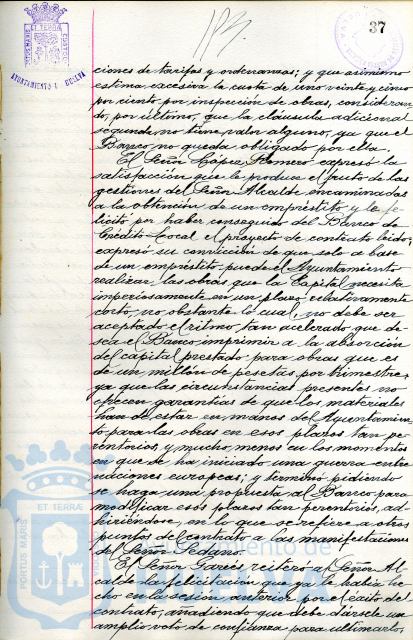 37
AYUNTAMIENTO HUELVA
ciones de tarifas y ordenanzas; y que asimismo
estima excesiva la cuota de uno veinte y cinco
por ciento por inspección de obras, consideran-
do, por último, que la cláusula adicional
segunda no tiene valor alguno, ya que el
Banco no queda obligado por ella.
El Señor López Romero expresó la
satisfacción que le produce el fruto de las
gestiones del Señor Alcalde encaminadas
a la obtención de un empréstito y le fe-
licitó por haber conseguido del Banco de
Crédito Local el proyecto de contrato leído;
expresó su convicción de que solo a base
de un empréstito puede el Ayuntamiento
realizar las obras que la Capital necesita
imperiosamente en un plazo relativamente
corto, no obstante lo cual, no debe ser
aceptado el ritmo tan acelerado que de-
sea el Banco imprimir a la absorción
del capital prestado para obras que es
de un millón de pesetas por trimestre,
ya que las circunstancias presentes no
ofrecen garantías de que los materiales
han de estar en manos del Ayuntamien-
to para las obras en esos plazos tan pe-
rentorios, y mucho menos en los momentos
en que se ha iniciado una guerra entre
naciones europeas; y terminó pidiendo
se haga una propuesta al Banco para
modificar esos plazos tan perentorios, ad-
hiriéndose, en lo que se refiere a otros
puntos del contrato a las manifestaciones
del Señor Sedano.
El Señor Garcés reiteró al Señor Al-
calde la felicitación que ya le había he-
cho en la sesión anterior por el éxito del
contrato, añadiendo que debe dársele un
amplio voto de confianza para ultimarlo,
PORTUS MARIS ET TERRAE
Ayuntamiento de